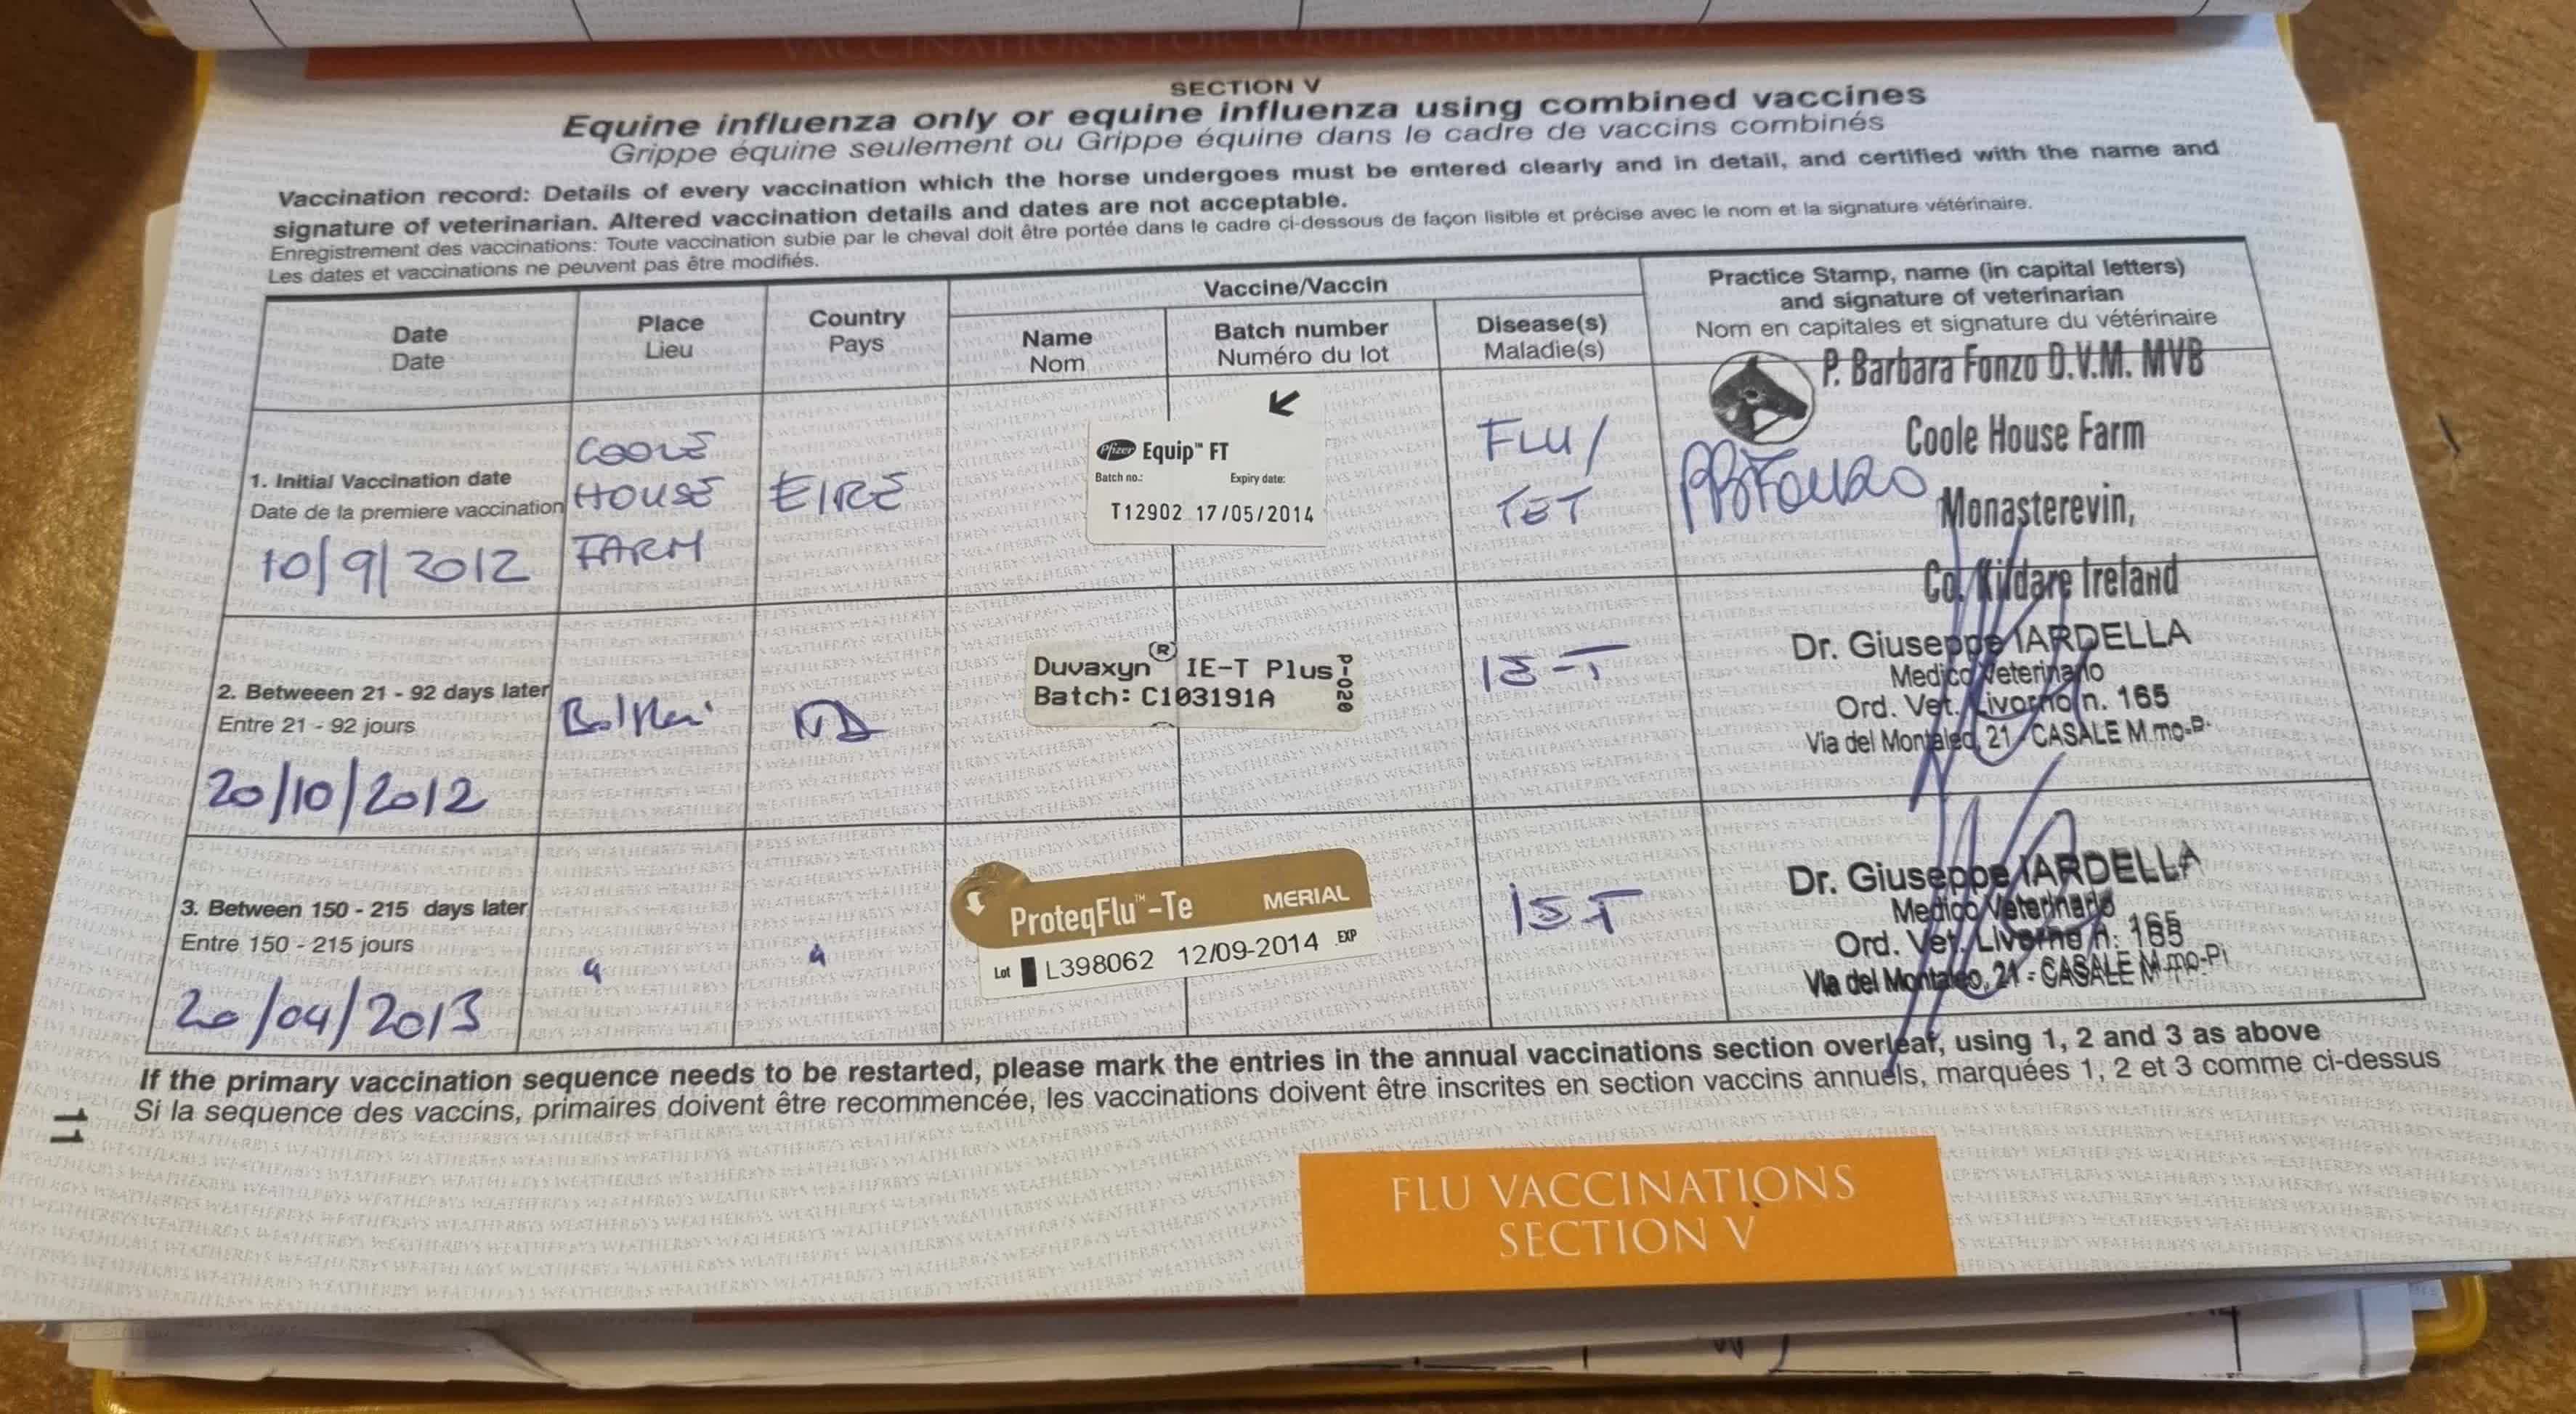 VACCINATIONS FOR EQUINE INFLUENZA
SECTION V
Equine influenza only or equine influenza using combined vaccines
Grippe équine seulement ou Grippe équine dans le cadre de vaccins combinés
Vaccination record: Details of every vaccination which the horse undergoes must be entered clearly and in detail, and certified with the name and
signature of veterinarian. Altered vaccination details and dates are not acceptable.
Enregistrement des vaccinations: Toute vaccination subie par le cheval doit être portée dans le cadre ci-dessous de façon lisible et précise avec le nom et la signature vétérinaire.
Les dates et vaccinations ne peuvent pas être modifiés.
Date
Date
Place
Lieu
Country
Pays
Vaccine/Vaccin
Name
Nom
Batch number
Numéro du lot
Disease(s)
Maladie(s)
Practice Stamp, name (in capital letters)
and signature of veterinarian
Nom en capitales et signature du vétérinaire
1. Initial Vaccination date
Date de la premiere vaccination
10/9/2012
COOLE
HOUSE
FARM
EIRE
Pfizer Equip™ FT
Batch no.: Expiry date:
T12902 17/05/2014
FLU/
TET
P. Barbara Fonzo D.V.M. MVB
Coole House Farm
Monasterevin,
Co. Kildare Ireland
2. Betweeen 21 - 92 days later
Entre 21 - 92 jours
20/10/2012
Duvaxyn® IE-T Plus
Batch: C103191A
P-020
IE-T
Dr. Giuseppe IARDELLA
Medico Veterinario
Ord. Vet. Livorno n. 165
Via del Montaleo, 21 - CASALE M.mo-P
3. Between 150 - 215 days later
Entre 150 - 215 jours
20/04/2013
"
"
ProteqFlu™-Te MERIAL
Lot L398062 12/09-2014 EXP
IE-T
Dr. Giuseppe IARDELLA
Medico Veterinario
Ord. Vet. Livorno n. 165
Via del Montaleo, 21 - CASALE M.mo-Pi
If the primary vaccination sequence needs to be restarted, please mark the entries in the annual vaccinations section overleaf, using 1, 2 and 3 as above
Si la sequence des vaccins, primaires doivent être recommencée, les vaccinations doivent être inscrites en section vaccins annuels, marquées 1, 2 et 3 comme ci-dessus
11
FLU VACCINATIONS
SECTION V